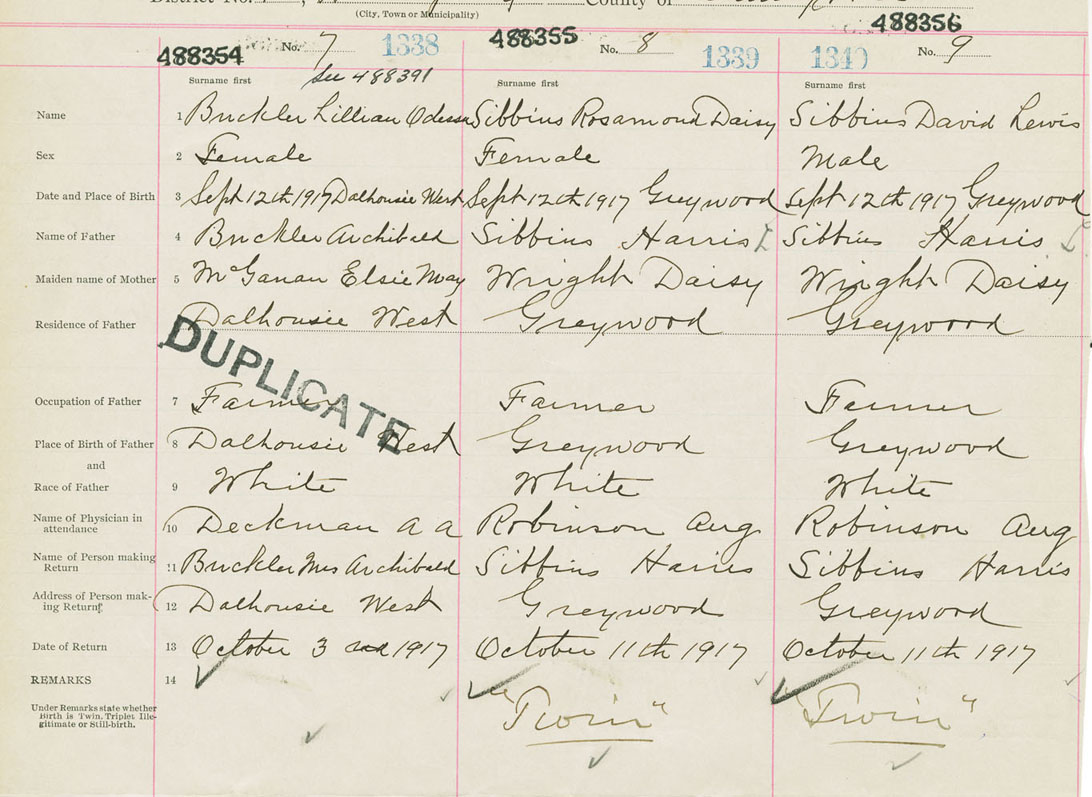 District No. County of
(City, Town or Municipality)
488354 No. 7 1338 488355 No. 8 1339 488356 No. 9 1340
See 488391
Surname first Surname first Surname first
Name 1 Buckler Lillian Odessa Sibbins Rosamond Daisy Sibbins David Lewis
Sex 2 Female Female Male
Date and Place of Birth 3 Sept 12th 1917 Dalhousie West Sept 12th 1917 Greywood Sept 12th 1917 Greywood
Name of Father 4 Buckler Archibald Sibbins Harris Sibbins Harris
Maiden name of Mother 5 Wright Daisy Wright Daisy
Elsie May
Residence of Father Dalhousie West Greywood Greywood
DUPLICATE
Occupation of Father 7 Farmer Farmer Farmer
Place of Birth of Father 8 Dalhousie West Greywood Greywood
and
Race of Father 9 White White White
Name of Physician in
attendance 10 Deckman A A Robinson Aug Robinson Aug
Name of Person making
Return 11 Buckler Mrs Archibald Sibbins Harris Sibbins Harris
Address of Person mak-
ing Return 12 Dalhousie West Greywood Greywood
Date of Return 13 October 3 1917 October 11th 1917 October 11th 1917
REMARKS 14
Under Remarks state whether
Birth is Twin, Triplet Ille-
gitimate or Still-birth.
"Twin" "Twin"